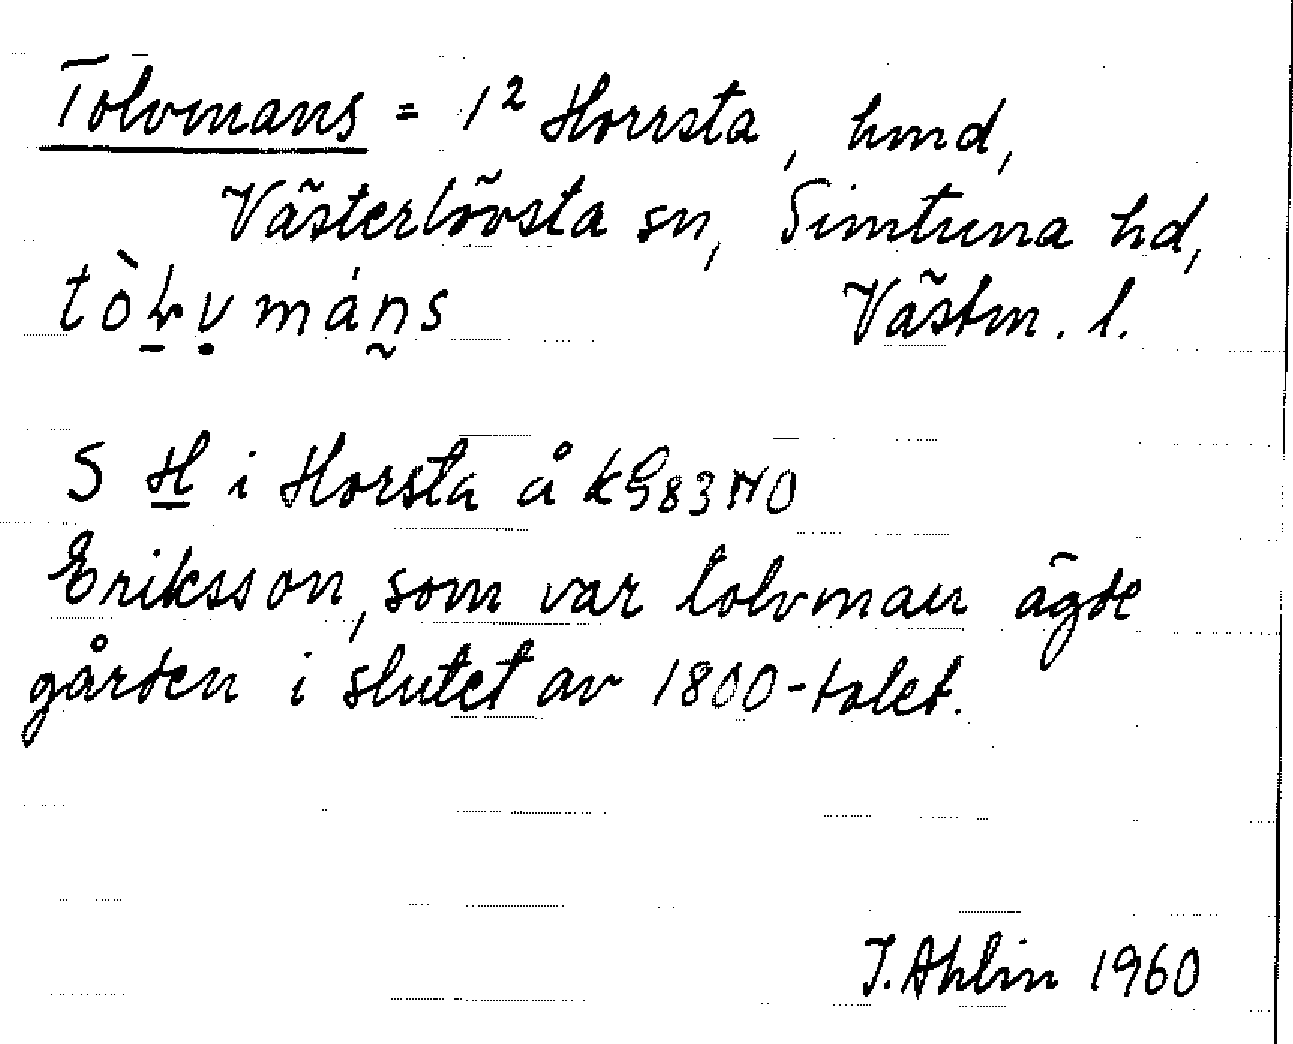 Tolvmans = 1² Horrsta, hmd,
Västerlövsta sn, Simtuna hd,
tòḷv̤máṇs Västm. l.
S H i Horsta å kG83NO
Eriksson, som var tolvman ägde
gården i slutet av 1800-talet.
J. Ahlin 1960